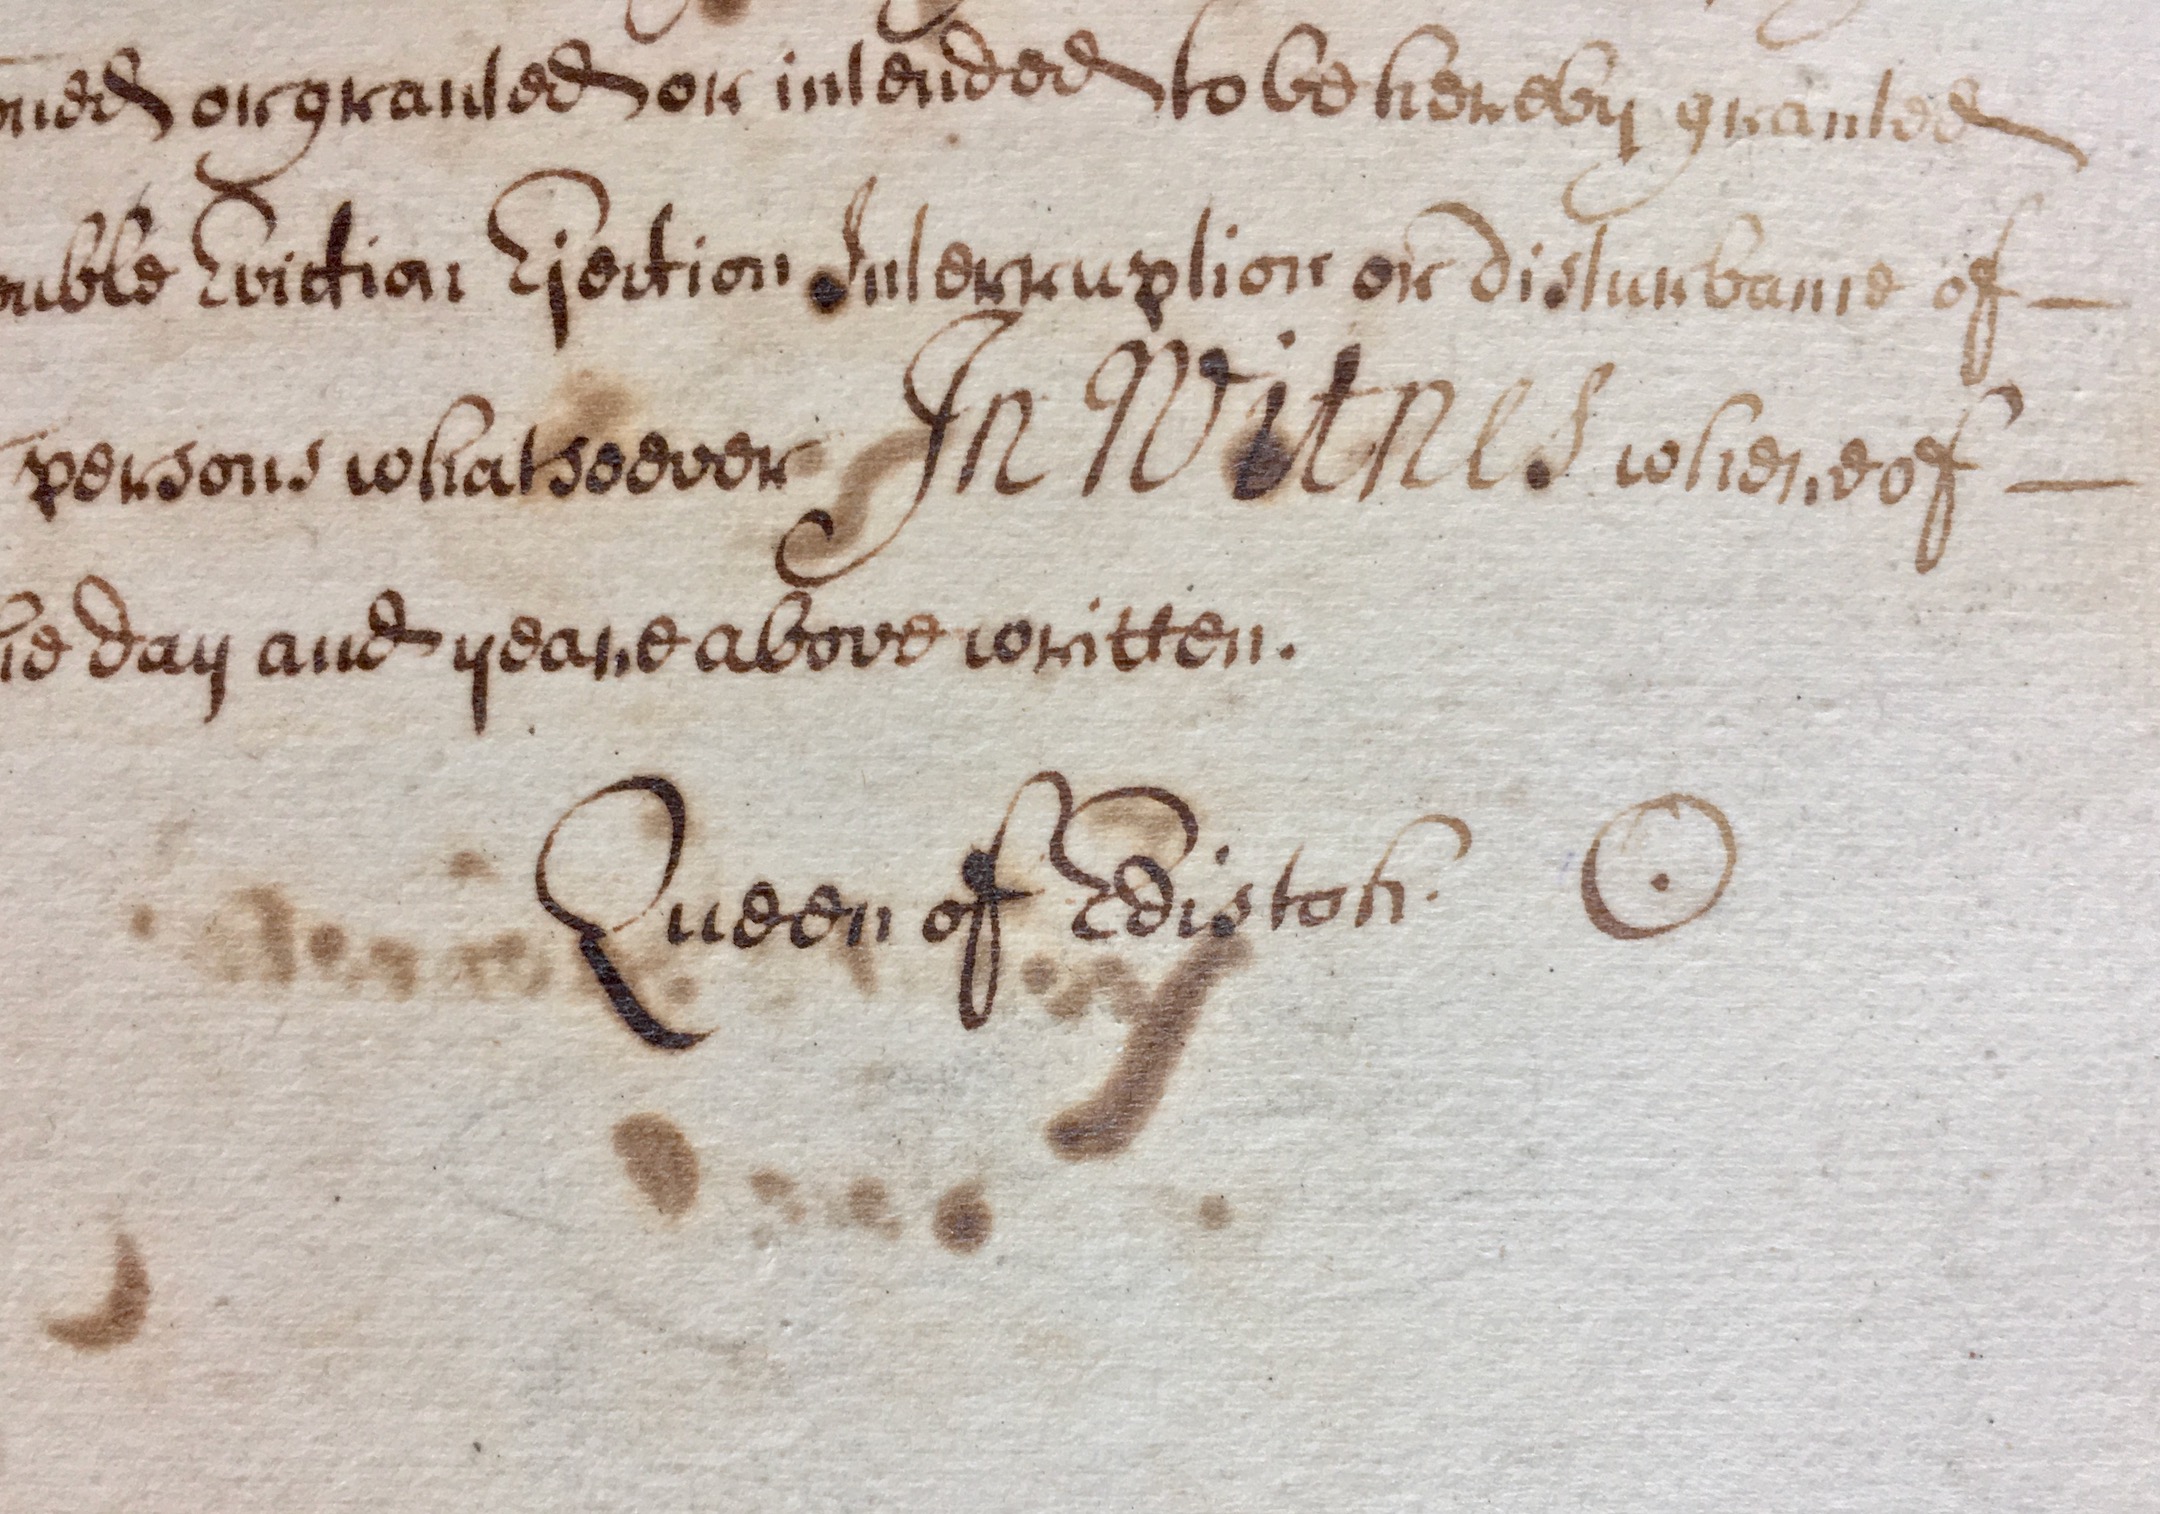 or granted or intended to be hereby granted
Eviction Ejection Interruption or disturbance of —
persons whatsoever In Witnes whereof —
day and yeare above written.
Queen of Edistoh.